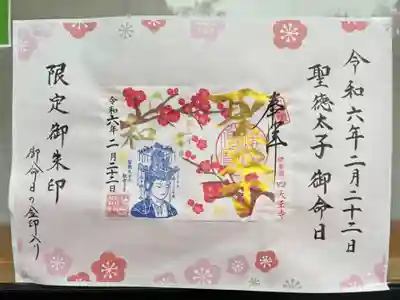 令和六年二月二十二日
聖徳太子 御命日
奉拝
伊勢国 四天王寺
令和六年 二月二十二日
限定御朱印
御命日の金印入り